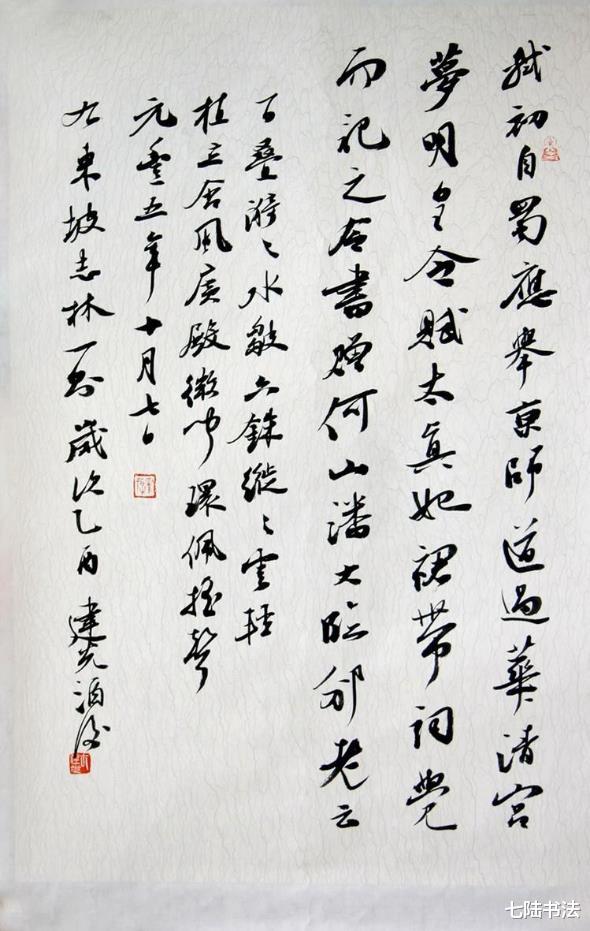 軾初自蜀應舉京師道過華清宮
夢明皇令賦太真妃裙帶詞覺
而記之今書贈何山潘大臨邠老云
百疊漪〻水皺六銖縰〻雲輕
植立含風廣殿微聞環佩搖聲
元豐五年十月七日
右東坡志林一則歲次乙酉建
七陆书法